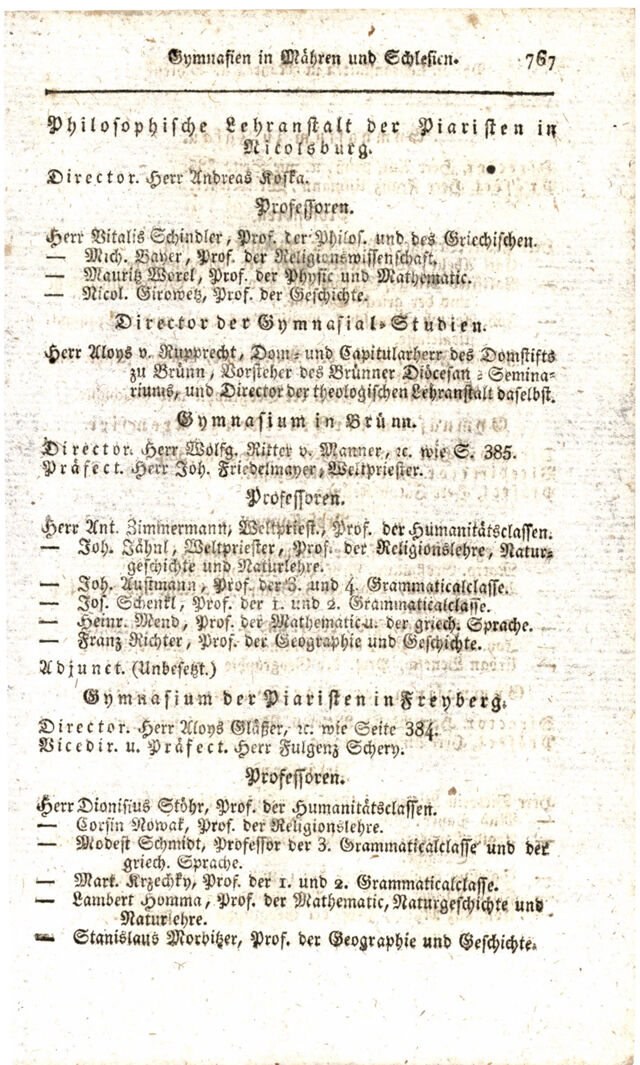 Gymnasien in Mähren und Schlesien. 767
Philosophische Lehranstalt der Piaristen in
Nicolsburg.
Director. Herr Andreas Koska.
Professoren.
Herr Vitalis Schindler, Prof. der Philos. und des Griechischen.
— Mich. Bayer, Prof. der Religionswissenschaft.
— Mauritz Worel, Prof. der Physic und Mathematic.
— Nicol. Girowetz, Prof. der Geschichte.
Director der Gymnasial-Studien.
Herr Aloys v. Rupprecht, Dom- und Capitularherr des Domstifts
zu Brünn, Vorsteher des Brünner Diöcesan-Semina-
riums, und Director der theologischen Lehranstalt daselbst.
Gymnasium in Brünn.
Director. Herr Wolfg. Ritter v. Manner, ꝛc. wie S. 385.
Präfect. Herr Joh. Friedelmayer, Weltpriester.
Professoren.
Herr Ant. Zimmermann, Weltpriest., Prof. der Humanitätsclassen.
— Joh. Jähnl, Weltpriester, Prof. der Religionslehre, Natur-
geschichte und Naturlehre.
— Joh. Austmann, Prof. der 3. und 4. Grammaticalclasse.
— Jos. Schenkl, Prof. der 1. und 2. Grammaticalclasse.
— Heinr. Mend, Prof. der Mathematic u. der griech. Sprache.
— Franz Richter, Prof. der Geographie und Geschichte.
Adjunct. (Unbesetzt.)
Gymnasium der Piaristen in Freyberg.
Director. Herr Aloys Gläßer, ꝛc. wie Seite 384.
Vicedir. u. Präfect. Herr Fulgenz Schery.
Professoren.
Herr Dionisius Stöhr, Prof. der Humanitätsclassen.
— Corsin Nowak, Prof. der Religionslehre.
— Modest Schmidt, Professor der 3. Grammaticalclasse und der
griech. Sprache.
— Mark. Krzechky, Prof. der 1. und 2. Grammaticalclasse.
— Lambert Homma, Prof. der Mathematic, Naturgeschichte und
Naturlehre.
— Stanislaus Morbitzer, Prof. der Geographie und Geschichte.